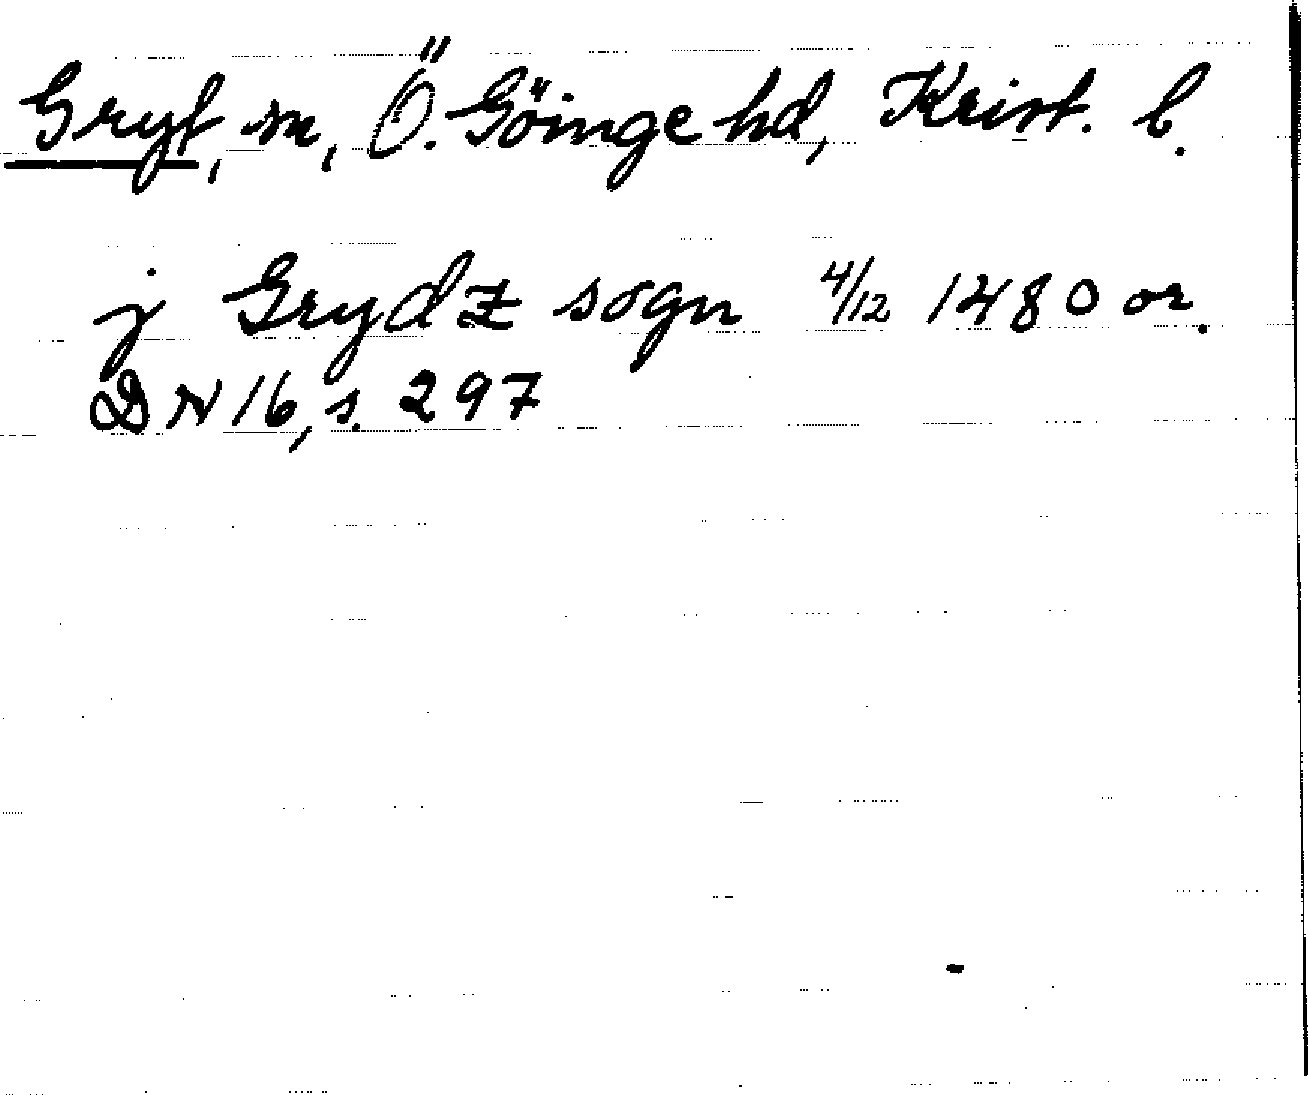 Gryt, sn, Ö. Göinge hd, Krist. l.
j Grydz sogn 4/12 1480 or.
DN 16, s. 297